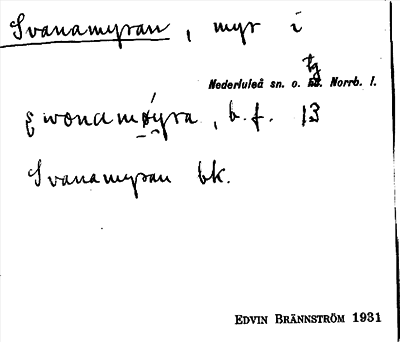 Svanamyran, myr i
tg
Nederluleå sn. o. hd. Norrb. l.
swonamøyra, b.f. 13
Svanamyran bk.
EDVIN BRÄNNSTRÖM 1931